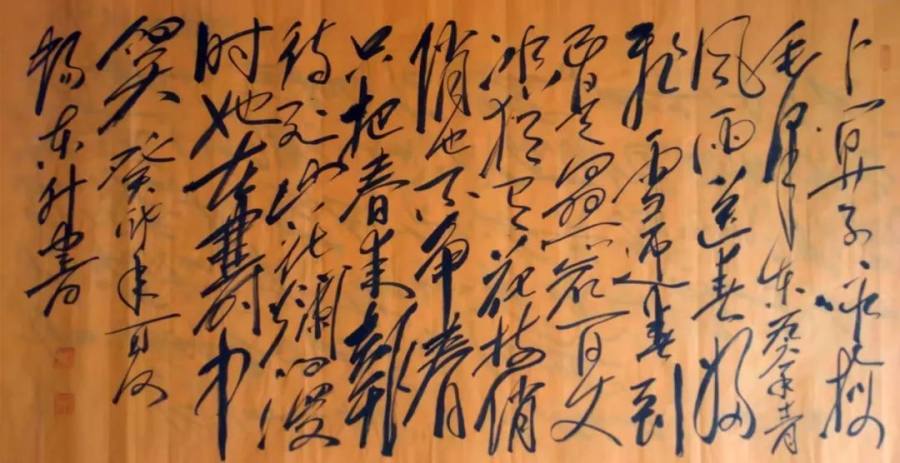 卜算子咏梅
毛泽东
风雨送春归
飞雪迎春到
已是悬崖百丈
冰犹有花枝俏
俏也不争春
只把春来報
待到山花爛漫
时她在叢中
笑 癸卯年夏
杨东升书